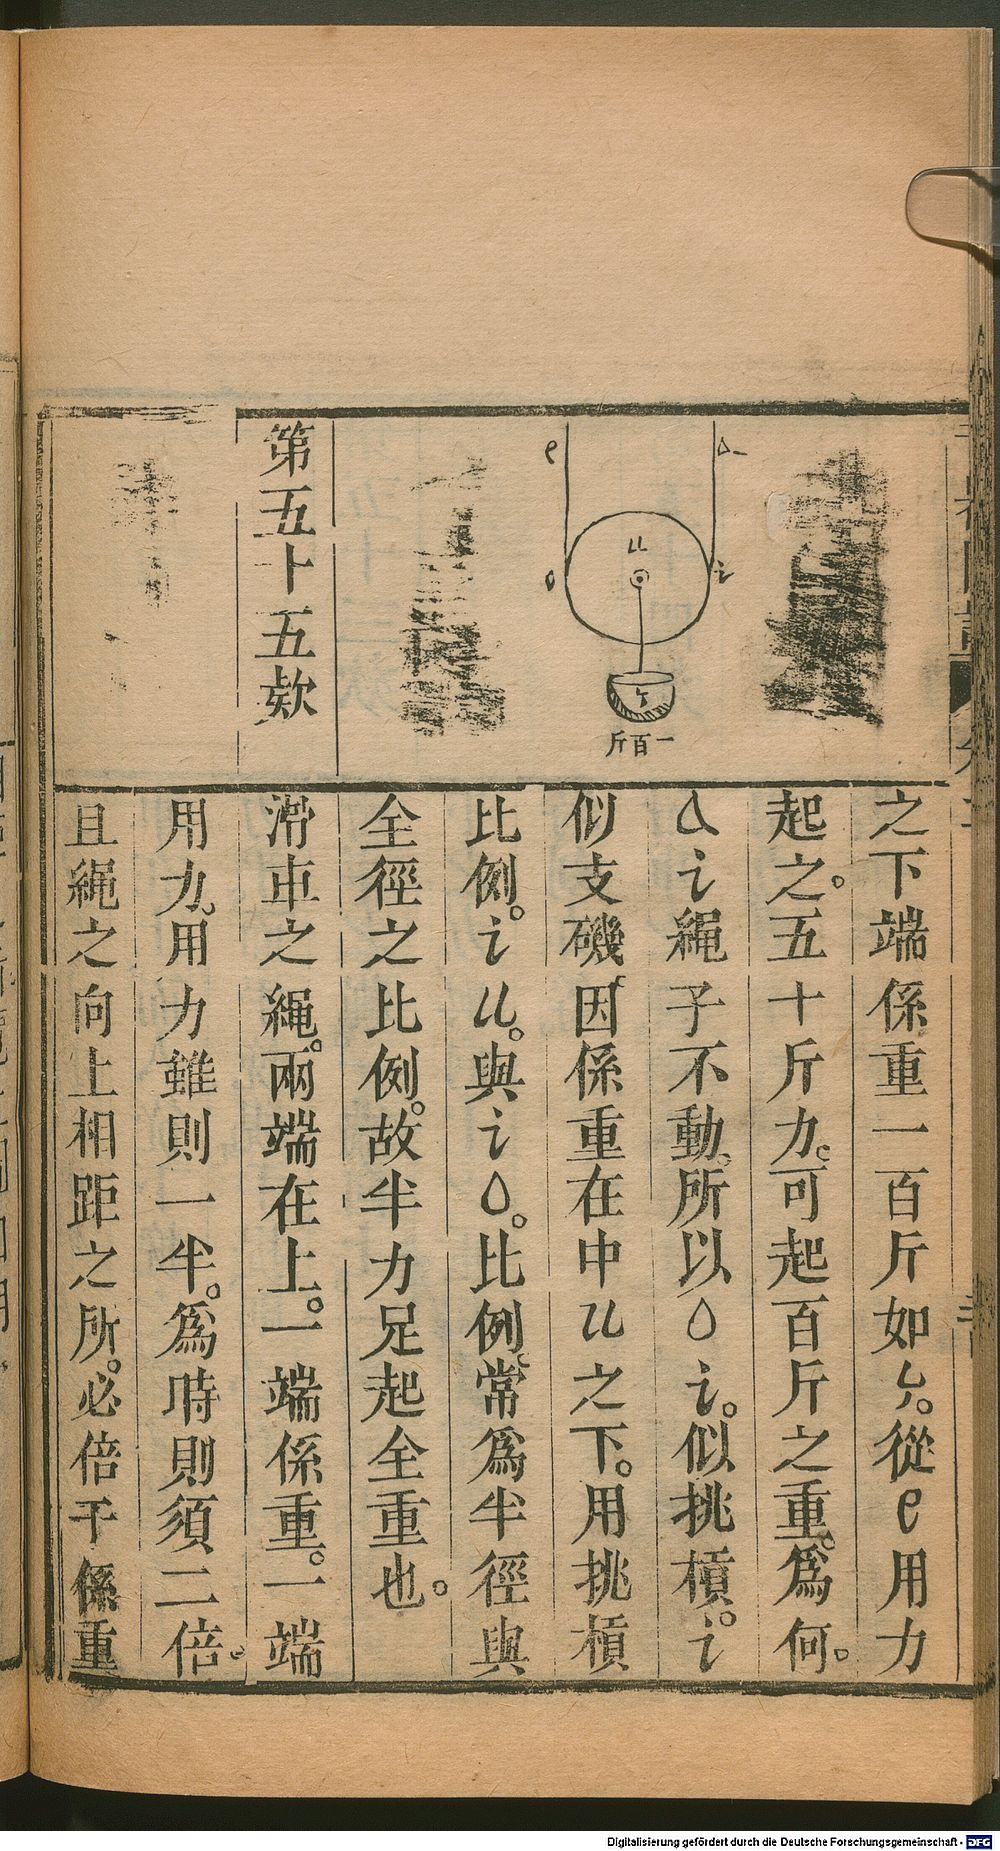 一百斤
之下端係重一百斤如ㄣ。從e用力
起之。五十斤力。可起百斤之重。爲何。
厶讠繩子不動。所以o讠。似挑槓。讠
似支磯因係重在中ㄩ之下。用挑槓
比例。讠ㄩ。與讠o。比例。常爲半徑與
全徑之比例。故半力足起全重也。
第五十五款
滑車之繩。兩端在上。一端係重。一端
用力。用力雖則一半。爲時則須二倍。
且繩之向上相距之所。必倍于係重
Digitalisierung gefördert durch die Deutsche Forschungsgemeinschaft - DFG